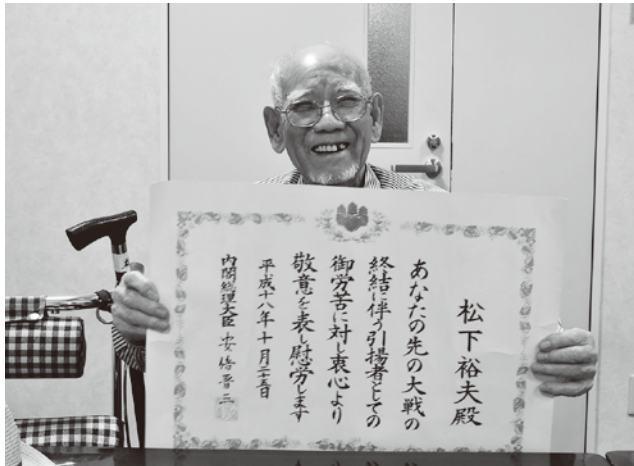 松下裕夫殿
あなたの先の大戦の
終結に伴う引揚者としての
御労苦に対し衷心より
敬意を表し慰労します
平成十八年十月二十五日
内閣総理大臣 安倍晋三